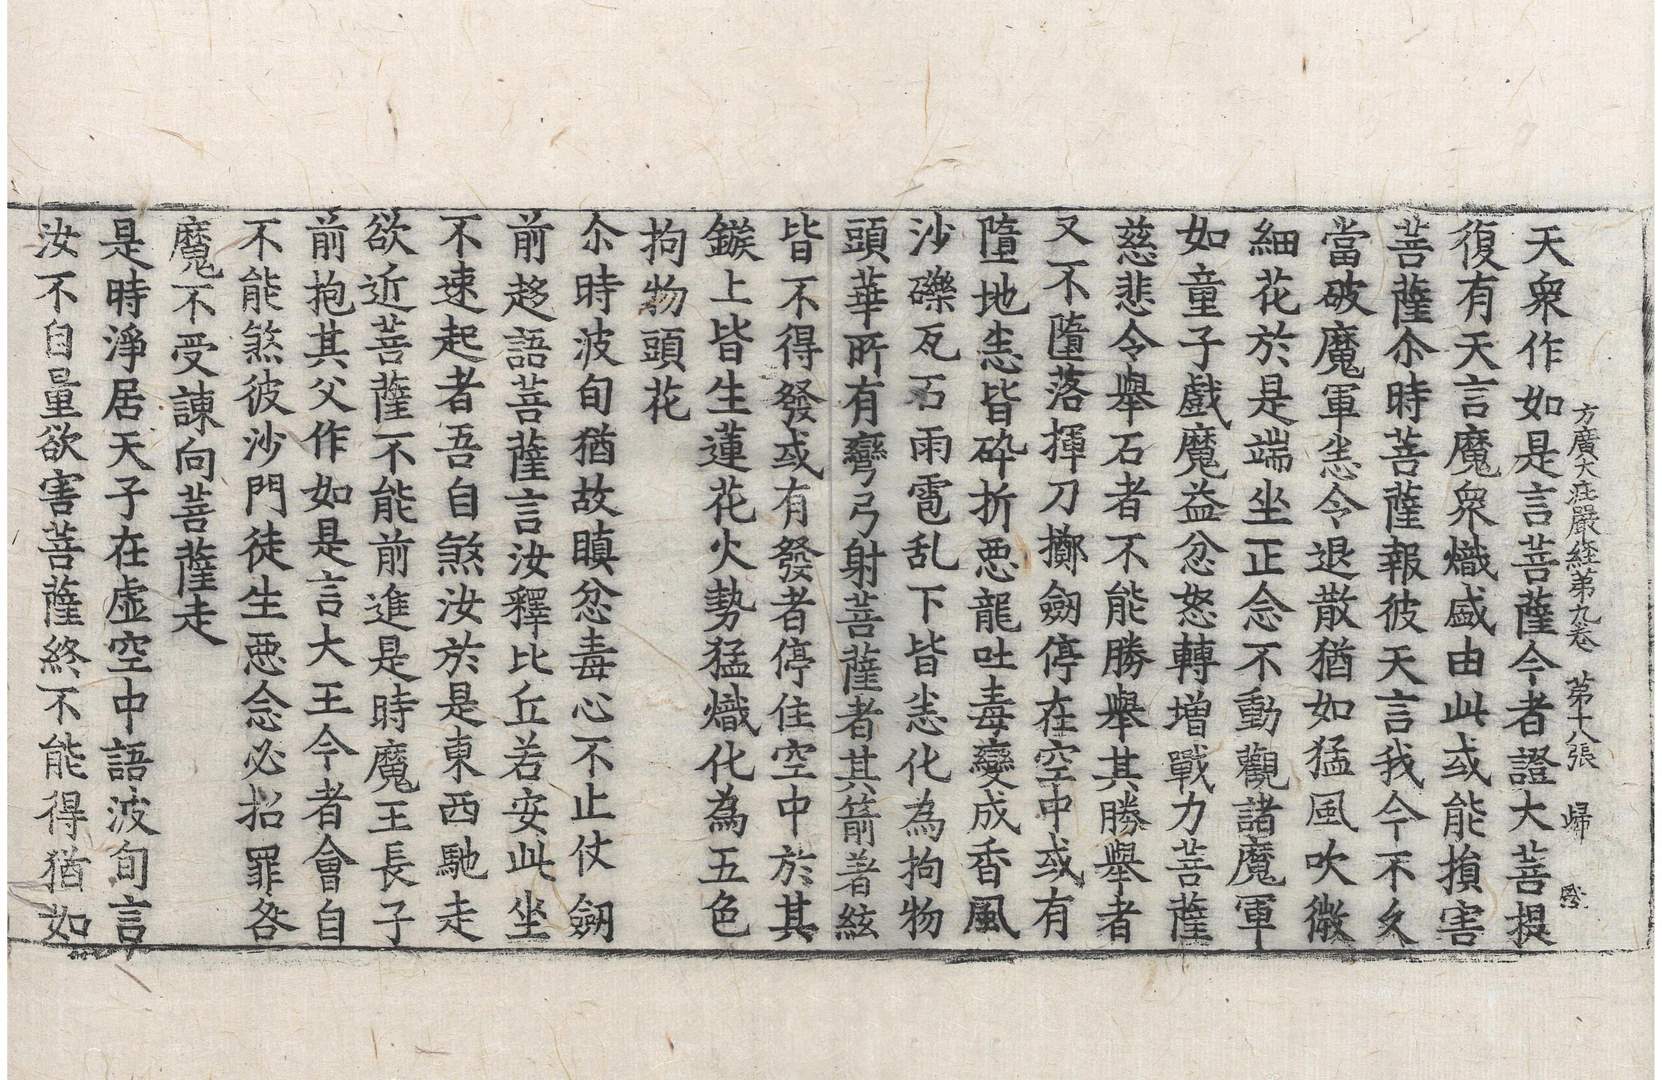 方廣大莊嚴経第九卷 第十八張 歸
天衆作如是言菩薩今者證大菩提
復有天言魔衆熾盛由此或能損害
菩薩尒時菩薩報彼天言我今不久
當破魔軍悉令退散猶如猛風吹微
細花於是端坐正念不動觀諸魔軍
如童子戲魔益忿怒轉增戰力菩薩
慈悲令舉石者不能勝舉其勝舉者
又不墮落揮刀擲劒停在空中或有
墮地悉皆碎折惡龍吐毒變成香風
沙礫瓦石雨雹乱下皆悉化為拘物
頭華所有彎弓射菩薩者其箭著絃
皆不得發或有發者停住空中於其
鏃上皆生蓮花火勢猛熾化為五色
拘物頭花
尒時波旬猶故瞋忿毒心不止仗劒
前趍語菩薩言汝釋比丘若安此坐
不速起者吾自煞汝於是東西馳走
欲近菩薩不能前進是時魔王長子
前抱其父作如是言大王今者會自
不能煞彼沙門徒生惡念必招罪咎
魔不受諫向菩薩走
是時淨居天子在虛空中語波旬言
汝不自量欲害菩薩終不能得猶如